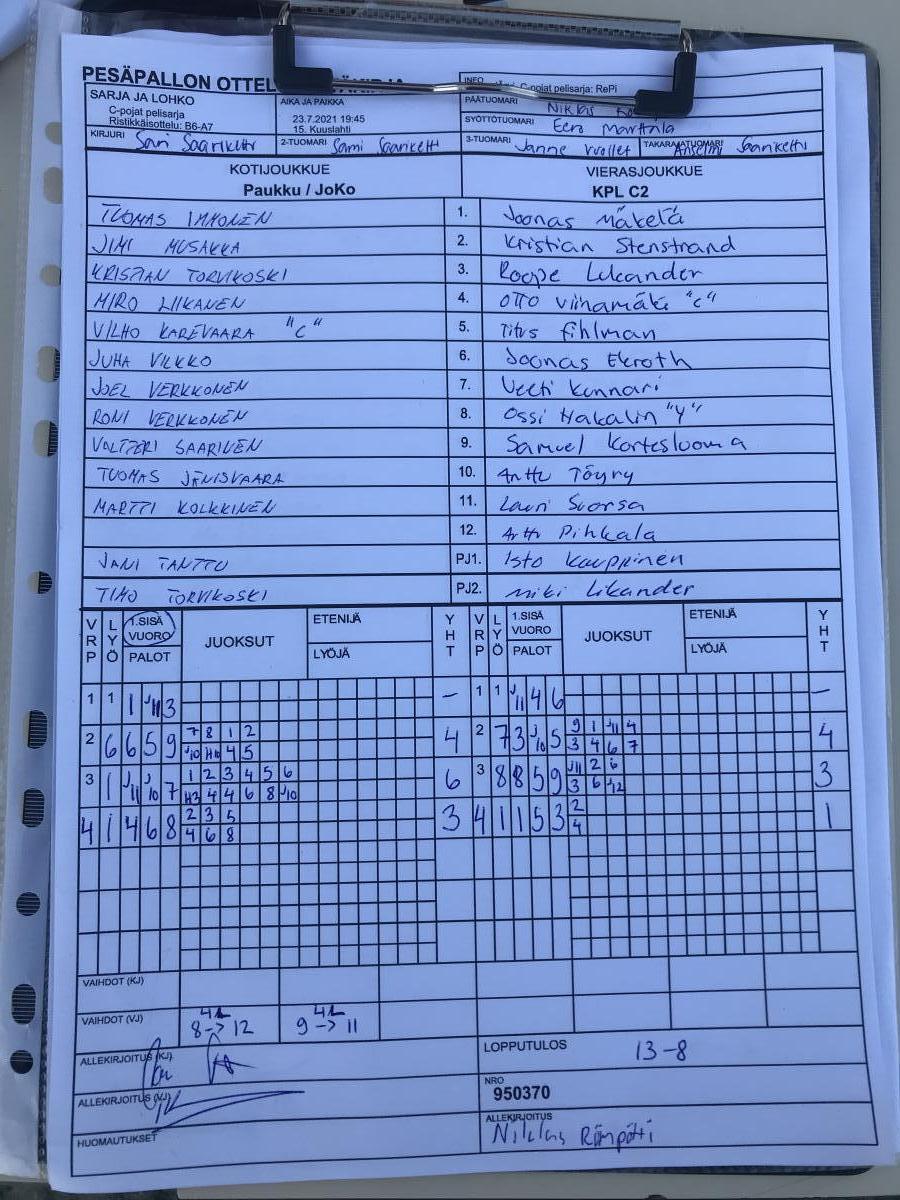 PESÄPALLON OTTEL
INFO C-pojat pelisarja: RePi
SARJA JA LOHKO
C-pojat pelisarja
Ristikkäisottelu: B6-A7
AIKA JA PAIKKA
23.7.2021 19:45
15. Kuuslahti
PÄÄTUOMARI Niklas
SYÖTTÖTUOMARI Eero Marttala
KIRJURI Sari Saariketti 2-TUOMARI Sami Saariketti 3-TUOMARI Janne Vuollet TAKARAJATUOMARI Anselmi Saariketti
KOTIJOUKKUE VIERASJOUKKUE
Paukku / JoKo KPL C2
TUOMAS IMMONEN 1. Joonas Mäkelä
JIMI MUSAKKA 2. Kristian Stenstrand
KRISTIAN TORVIKOSKI 3. Roope Likander
MIRO LIIKANEN 4. OTTO Viinamäki "C"
VILHO KAREVAARA "C" 5. Titus Fihlman
JUHA VILKKO 6. Joonas Ekroth
JOEL VERKKONEN 7. Veeti Kunnari
RONI VERKKONEN 8. Ossi Hakalin "Y"
VALTTERI SAARINEN 9. Samuel Kortesluoma
TUOMAS JÄNISVAARA 10. Arttu Töyry
MARTTI KOLKKINEN 11. Lauri Suorsa
12. Arttu Pihkala
JANI TANTTU PJ1. Isto Kauppinen
TIMO TORVIKOSKI PJ2. Miki Likander
VRP LYÖ 1.SISÄ VUORO PALOT JUOKSUT ETENIJÄ LYÖJÄ YHT VRP LYÖ 1.SISÄ VUORO PALOT JUOKSUT ETENIJÄ LYÖJÄ YHT
1 1 1 J11 3 – 1 1 J11 4 6 –
2 6 6 5 9 7 8 1 2 4 2 7 3 J10 5 9 1 J11 4 4
J10 H10 4 5 3 4 6 7
3 1 J11 J10 7 1 2 3 4 5 6 6 3 8 8 5 9 J11 2 6 3
H3 4 4 6 8 J10 3 6 J12
4 1 4 6 8 2 3 5 3 4 1 1 5 3 2 1
4 6 8 4
VAIHDOT (KJ)
VAIHDOT (VJ) 4L 8->12 4L 9->11
ALLEKIRJOITUS (KJ) LOPPUTULOS 13-8
ALLEKIRJOITUS (VJ) NRO
950370
HUOMAUTUKSET ALLEKIRJOITUS
Niklas Römpötti